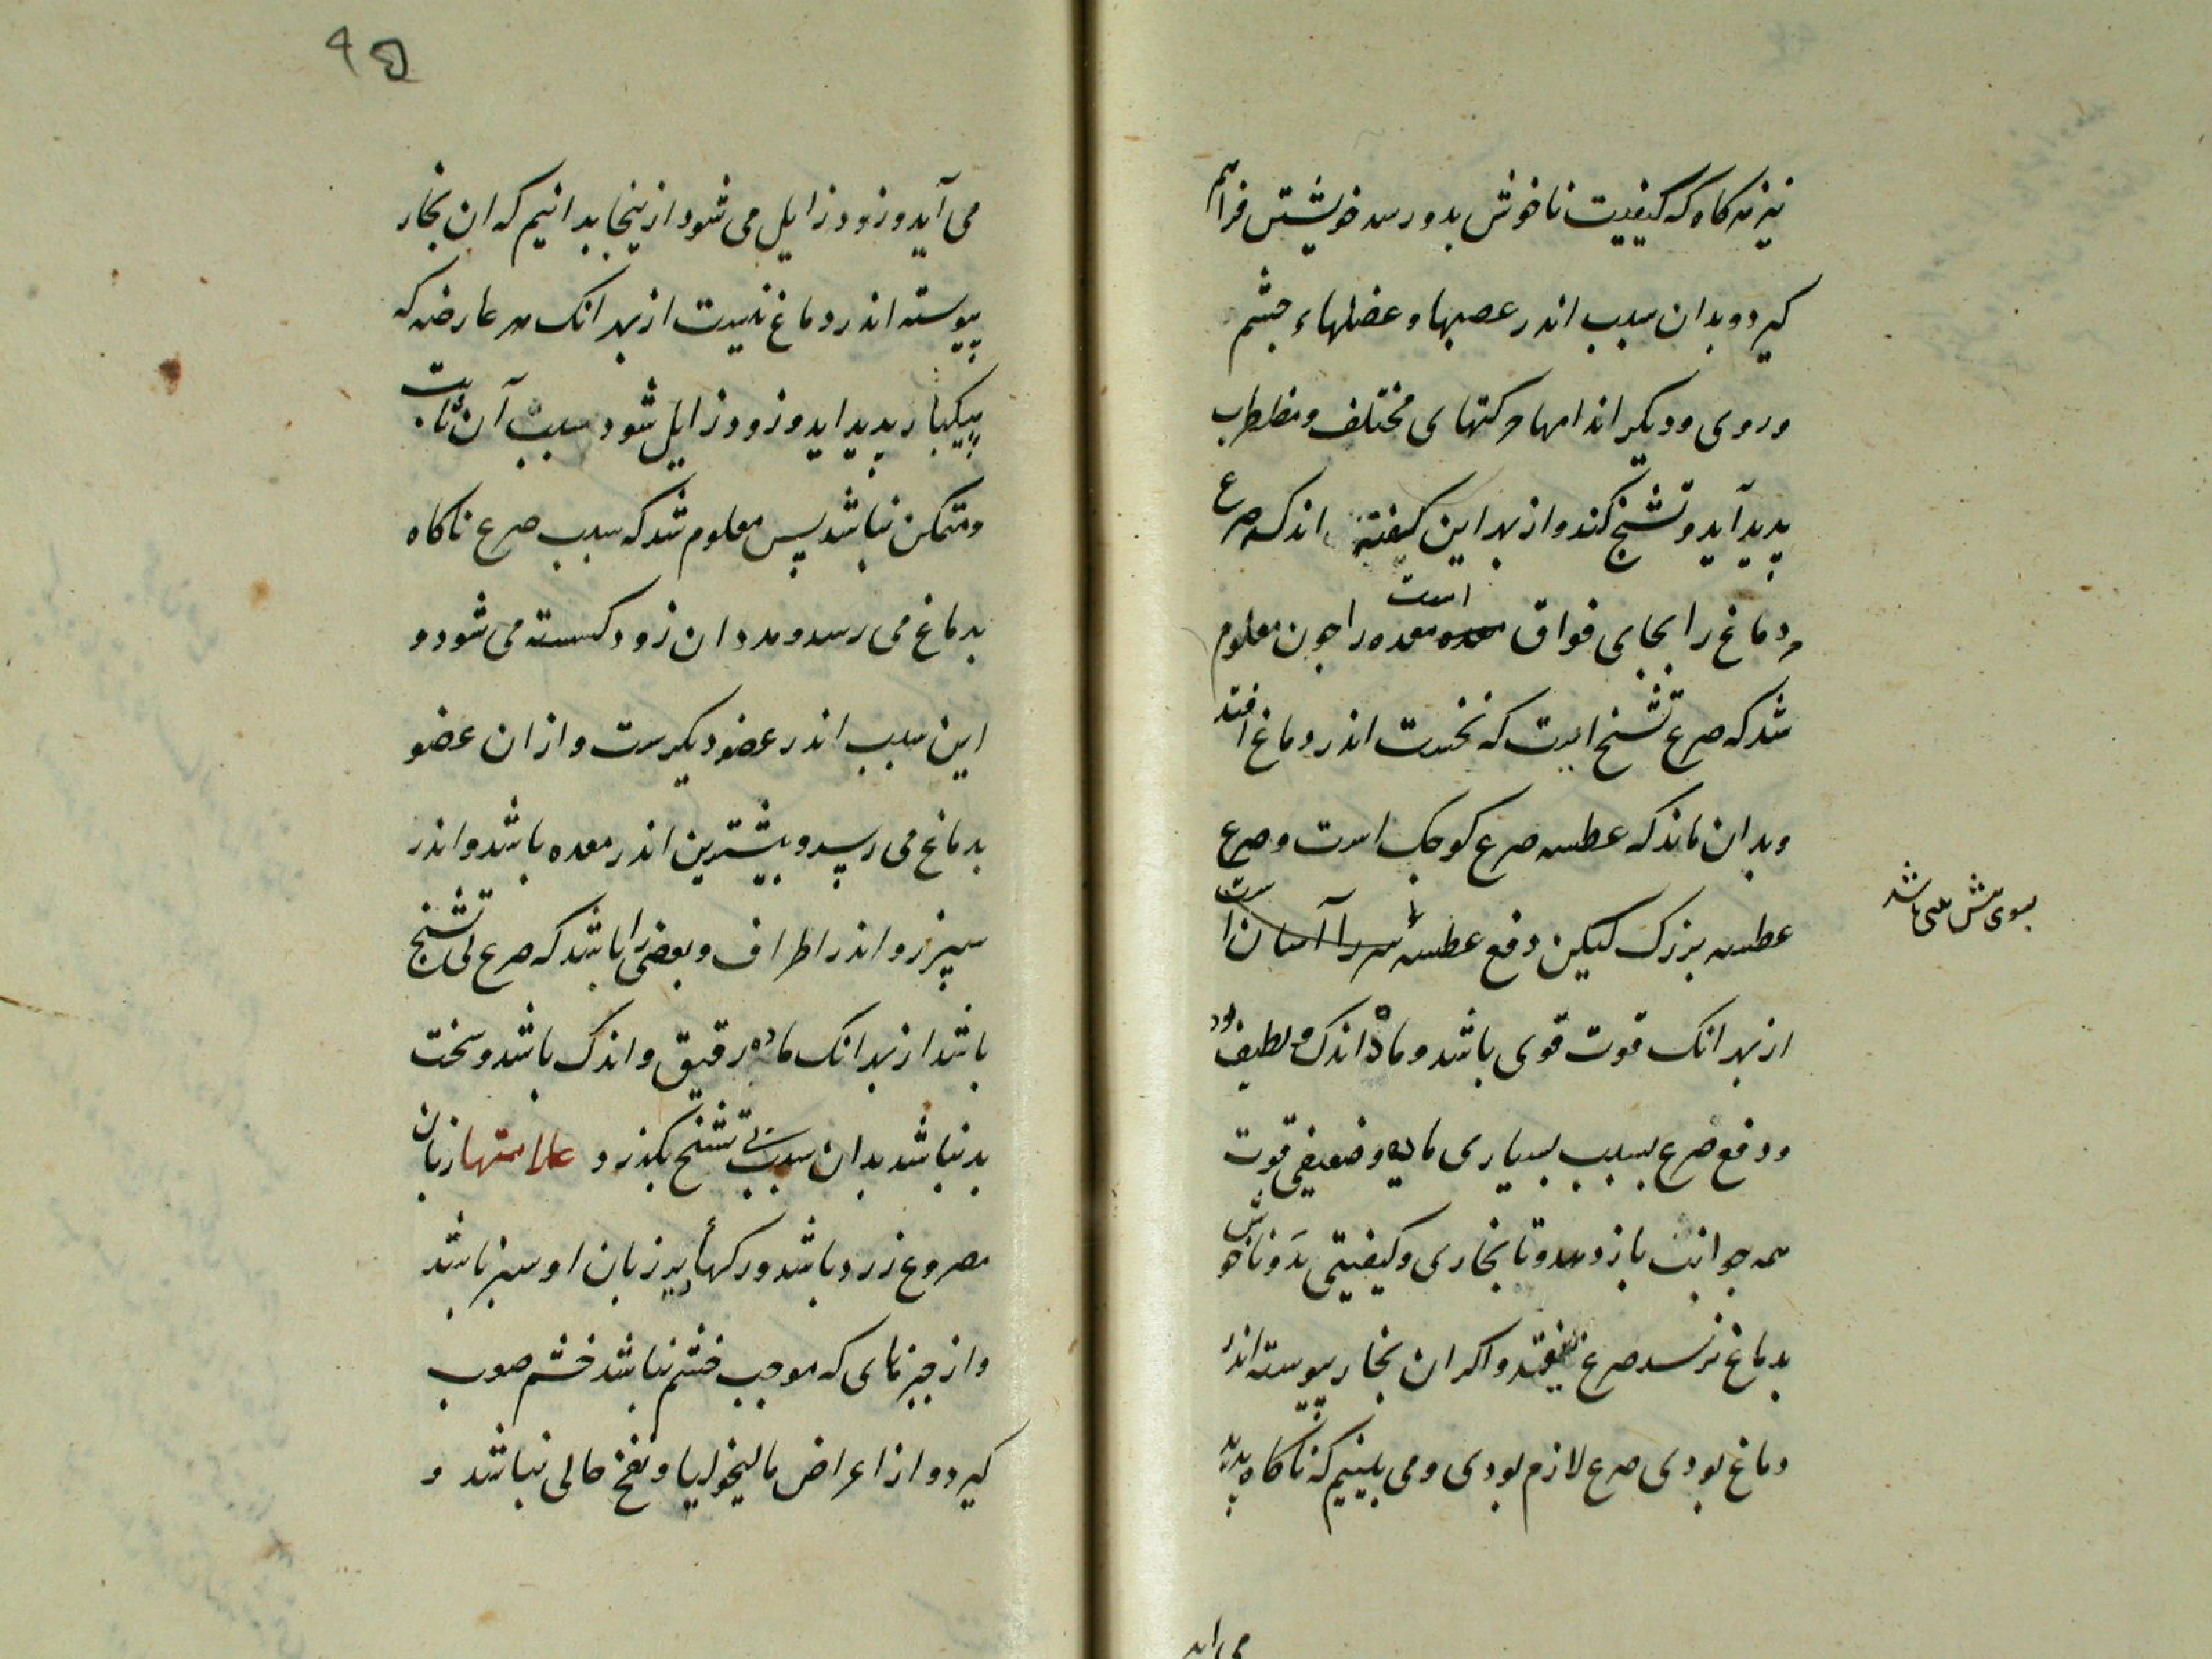 نیز هرکاه که کیفیت ناخوش بدو رسد خویشتن فراهم
کیرد و بدان سبب اندر عصبها و عضلهاء چشم
و روی و دیکر اندامها حرکتهای مختلف و مضطرب
پدید آید و تشنج کند و از بهر این کیفیة اندک صرع
مر دماغ را بجای فواق است معده را چون معلوم
شد که صرع تشنج است که نخست اندر دماغ افتد
و بدان ماند که عطسه صرع کوچک است و صرع
عطسه بزرک لیکن دفع عطسه
بسوی پیش بینی باشد
از بهر انک قوت قوی باشد و ماده اندک و لطیف بود
و دفع صرع بسبب بسیاری ماده و ضعیفی قوت
همه جوانب باز دهد و تا بخاری و کیفیتی بد و ناخوش
بدماغ نرسد صرع نیفتد و اکر ان بخار پیوسته اندر
دماغ بودی صرع لازم بودی و می بینیم که ناکاه پدید
می اید
۹۵
می آید و زود زایل می شود از ینجا بدانیم که ان بخار
پیوسته اندر دماغ نیست از بهر انک هر عارضه که
بیکبار پدید اید و زود زایل شود سبب آن ثابت
و متمکن نباشد پس معلوم شد که سبب صرع ناکاه
بدماغ می رسد و مدد ان زود کسسته می شود و
این سبب اندر عضو دیکرست و از ان عضو
بدماغ می رسد و بیشترین اندر معده باشد و اندر
سپرز و اندر اطراف و بعضی را باشد که صرع بی تشنج
باشد از بهر انک ماده رقیق و اندک باشد و سخت
بد نباشد بدان سبب بی تشنج بکذرد علامتها زبان
مصروع زرد باشد و رکهأ زیر زبان او سبز باشد
و از چیزهای که موجب خشم نباشد خشم صعب
کیرد و از اعراض مالیخولیا و نفخ خالی نباشد و